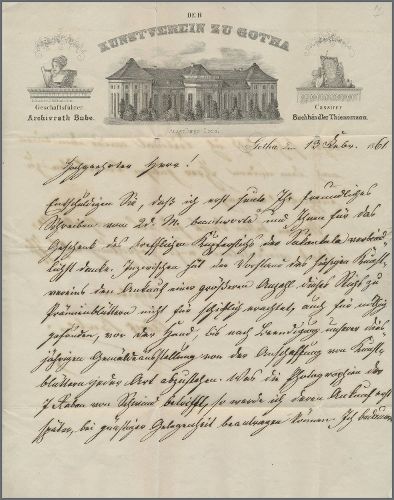 DER
KUNSTVEREIN ZU GOTHA
Geschäftsführer
Archivrath Bube.
Cassirer
Buchhändler Thienemann.
Gotha den 13 Febr. 1861
Hochgeehrter Herr!
Entschuldigen Sie, daß ich erst heute Ihr freundliches
Schreiben vom 22. M. beantworte und Ihnen für das
Geschenk des trefflichen Kupferstichs der verbind-
lichst danke. Inzwischen hat der Vorstand des hiesigen Kunst-
vereins den Ankauf einer größeren Anzahl dieses Stichs zu
Prämienblättern nicht für schicklich erachtet, auch für nöthig
gefunden, vor der Hand, bis nach Beendigung unserer dies-
jährigen Gemäldeausstellung von der Anschaffung von Kunst-
blättern jeder Art abzustehen. Was die Photographien der
7 Raben von Schwind betrifft, so werde ich deren Ankauf erst
später, bei günstiger Gelegenheit beantragen können. Ich bedaure